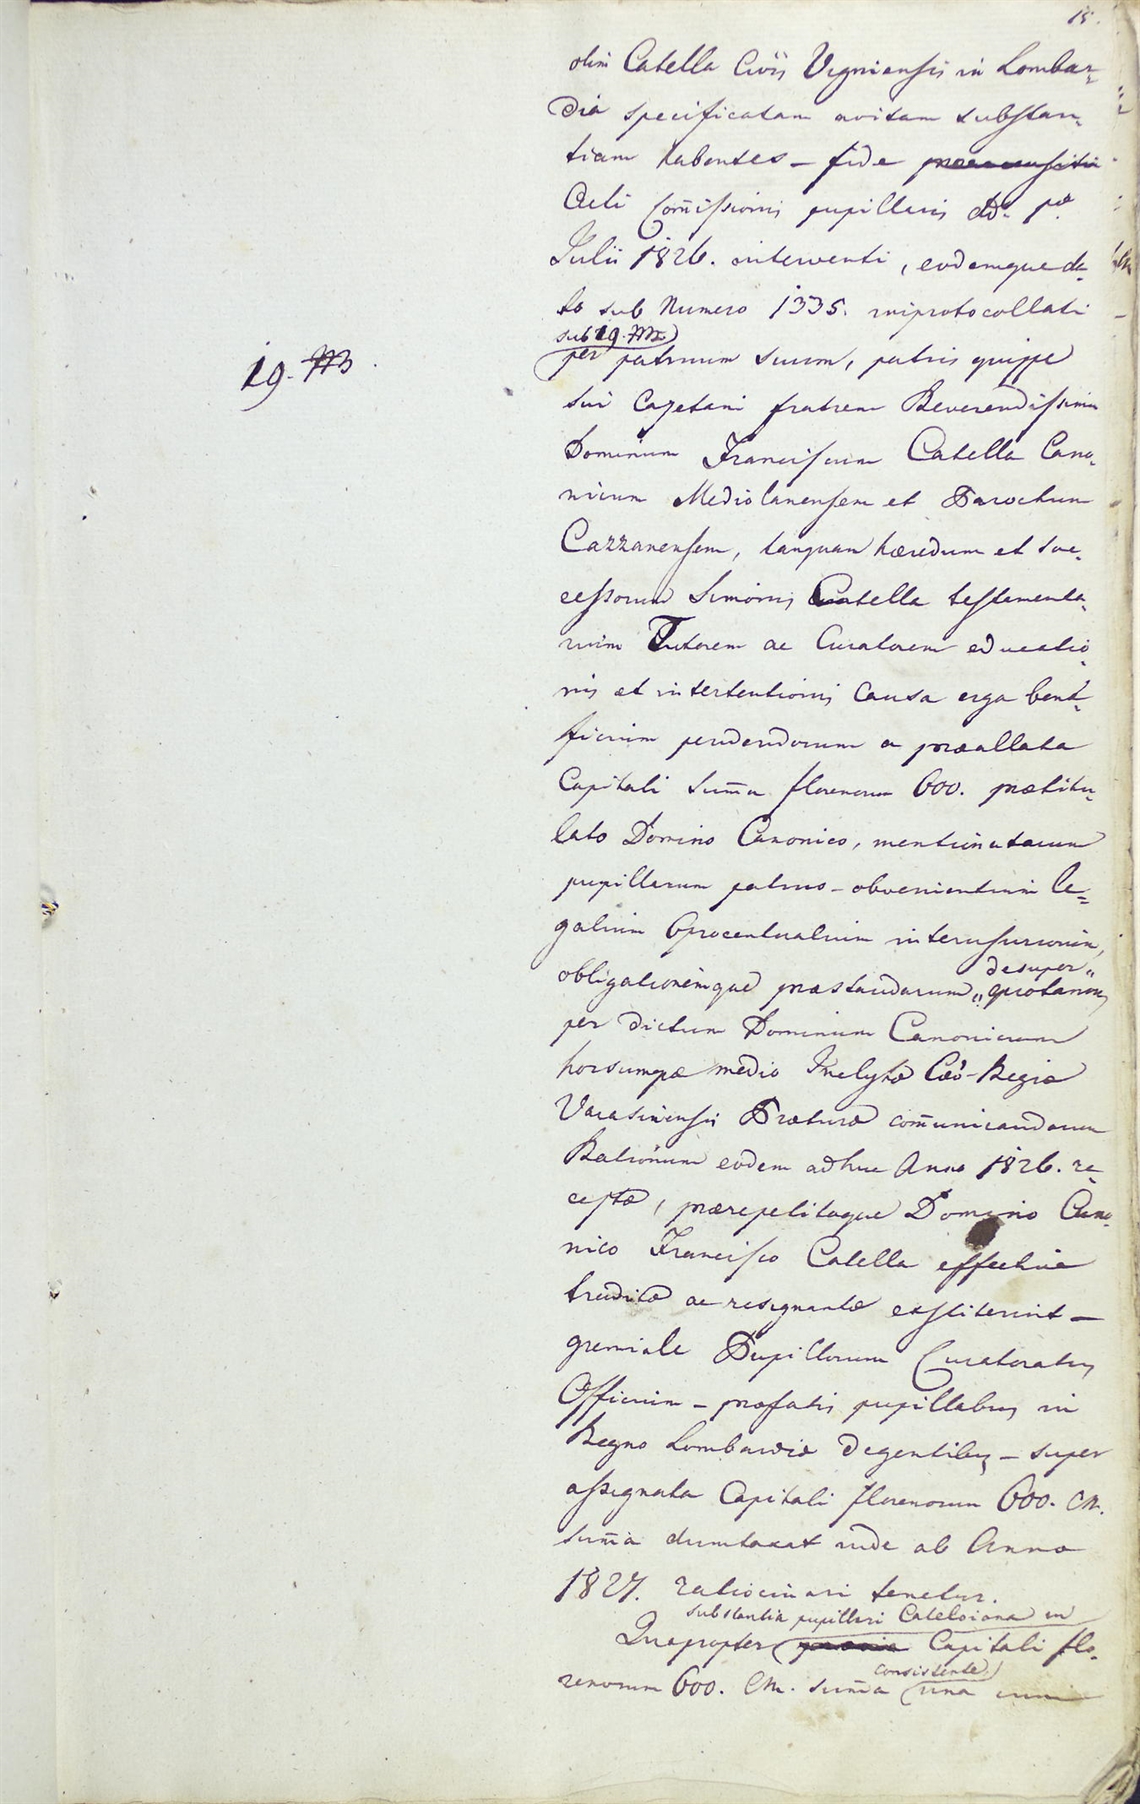 15.
olim Catella Civis Vigniensis in Lombar=
dia specificatam avitam substan=
tiam habentes – fide
Acti Com̃issionis pupillaris ddo. pa.
Julii 1826. interventi, eodemque da=
to sub Numero 1335. inprotocollati –
sub 19. ////.
19. ////.
per patruum suum, patris quippe
sui Cajetani fratrem Reverendissimum
Dominum Franciscum Catella Cano=
nicum Mediolanensem et Parochum
Cazzanensem, tanquam hæredum et suc=
cessorum Simonis Catella testamenta=
rium Tutorem ac Curatorem educatio=
nis et intertentionis causa erga bene=
ficium pendendorum a præallata
Capitali Sum̃a florenorum 600. prætitu=
lato Domino Canonico, mentionatarum
pupillarum patruo – obvenientium le=
galium 6procentualium interusuriorum,
desuper
obligationemque præstandarum quotannis
per dictum Dominum Canonicum
horsumque medio Inclytæ Cæo-Regiæ
Varesiniensis Præturæ com̃unicandarum
Rationum eodem adhuc Anno 1826. re=
ceptæ, prærepetitoque Domino Cano=
nico Francisco Catella effective
traditæ ac resignatæ exstiterint –
gremiale Pupillorum Curatoratus
Officium – præfatis pupillabus in
Regno Lombardiæ degentibus – super
assignata Capitali florenorum 600. CM.
sum̃a dumtaxat inde ab Anno
1827. ratiocinari tenetur.
substantia pupillari Cateloiana in
Quapropter Capitali flo=
consistente
renorum 600. CM. sum̃a una cum